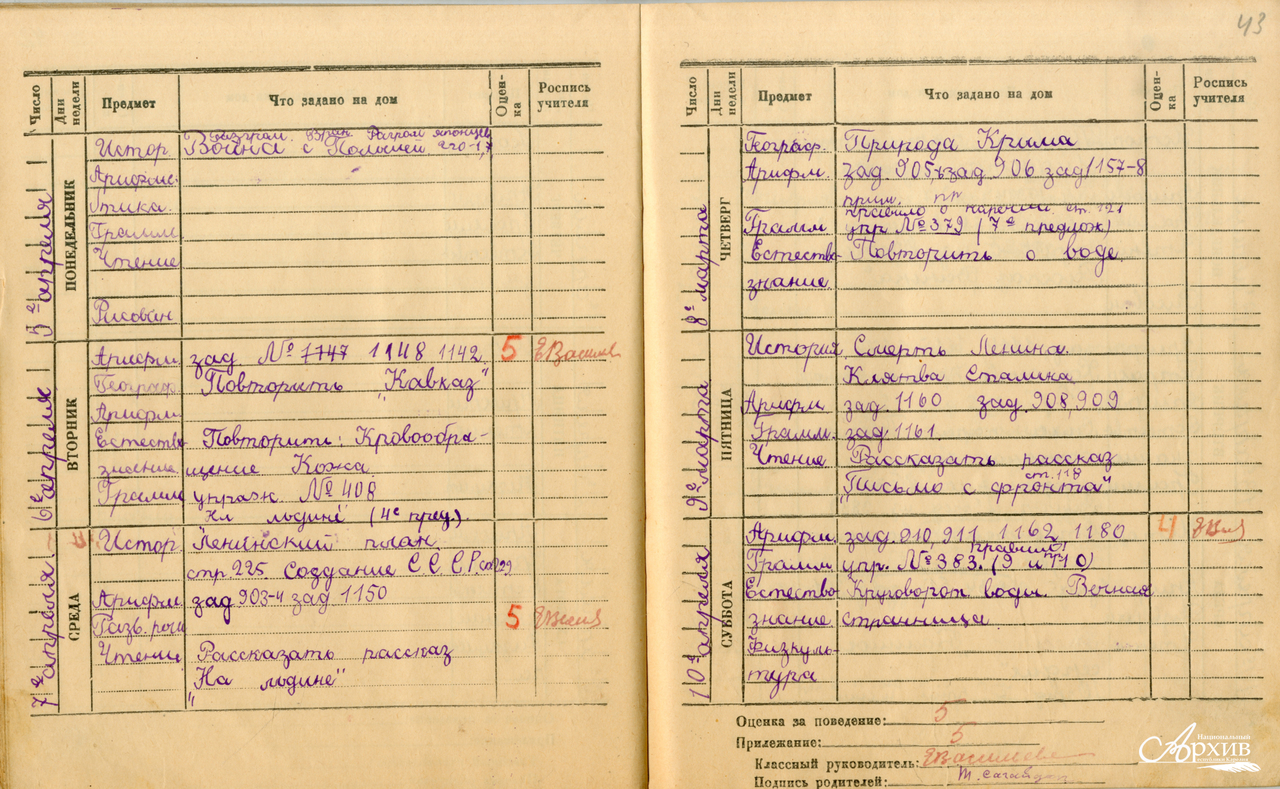 43
Число Дни недели Предмет Что задано на дом Оцен-ка Роспись учителя
5е апреля ПОНЕДЕЛЬНИК
Разгром Вран. японцев
Истор. Война с Польшей 220-1,
Арифме-
тика.
Грамм
Чтение
Рисован
6е апреля ВТОРНИК
Арифм зад. № 1147 1148 1142 5 ЕВасил
Географ. Повторить „Кавказ"
Арифм
Естество Повторить: Кровообра-
знание щение Кожа
Грамм упражн. № 408
(4е пред.)
7е апреля СРЕДА
Истор Ленинский план
стр 225. Создание С С С Р
Арифм зад 903-4 зад 1150
Разв. речи 5
Чтение Рассказать рассказ
„На льдине"
Число Дни недели Предмет Что задано на дом Оцен-ка Роспись учителя
8е марта ЧЕТВЕРГ
Географ. Природа Крыма
Арифм. зад 905, зад 906 зад 1157-8
прим. пр
правило о наречии ст. 121
Грамм упр № 379 (7е предлож)
Естество- Повторить о воде
знание
9е марта ПЯТНИЦА
История Смерть Ленина.
Клятва Сталина
Арифм зад. 1160 зад. 908,909
Грамм. зад 1161
Чтение Рассказать рассказ
ст. 118
„Письмо с фронта"
10е апреля СУББОТА
Арифм. зад. 910 911 1162 1180 4
правило
Грамм упр. № 383. (9 и 10)
Естество Круговорот воды. Вечная
знание странница
Физкуль-
тура
Оценка за поведение: 5
Прилежание: 5
Классный руководитель: ЕВасильева
Подпись родителей:
Национальный
Архив
республики Карелия